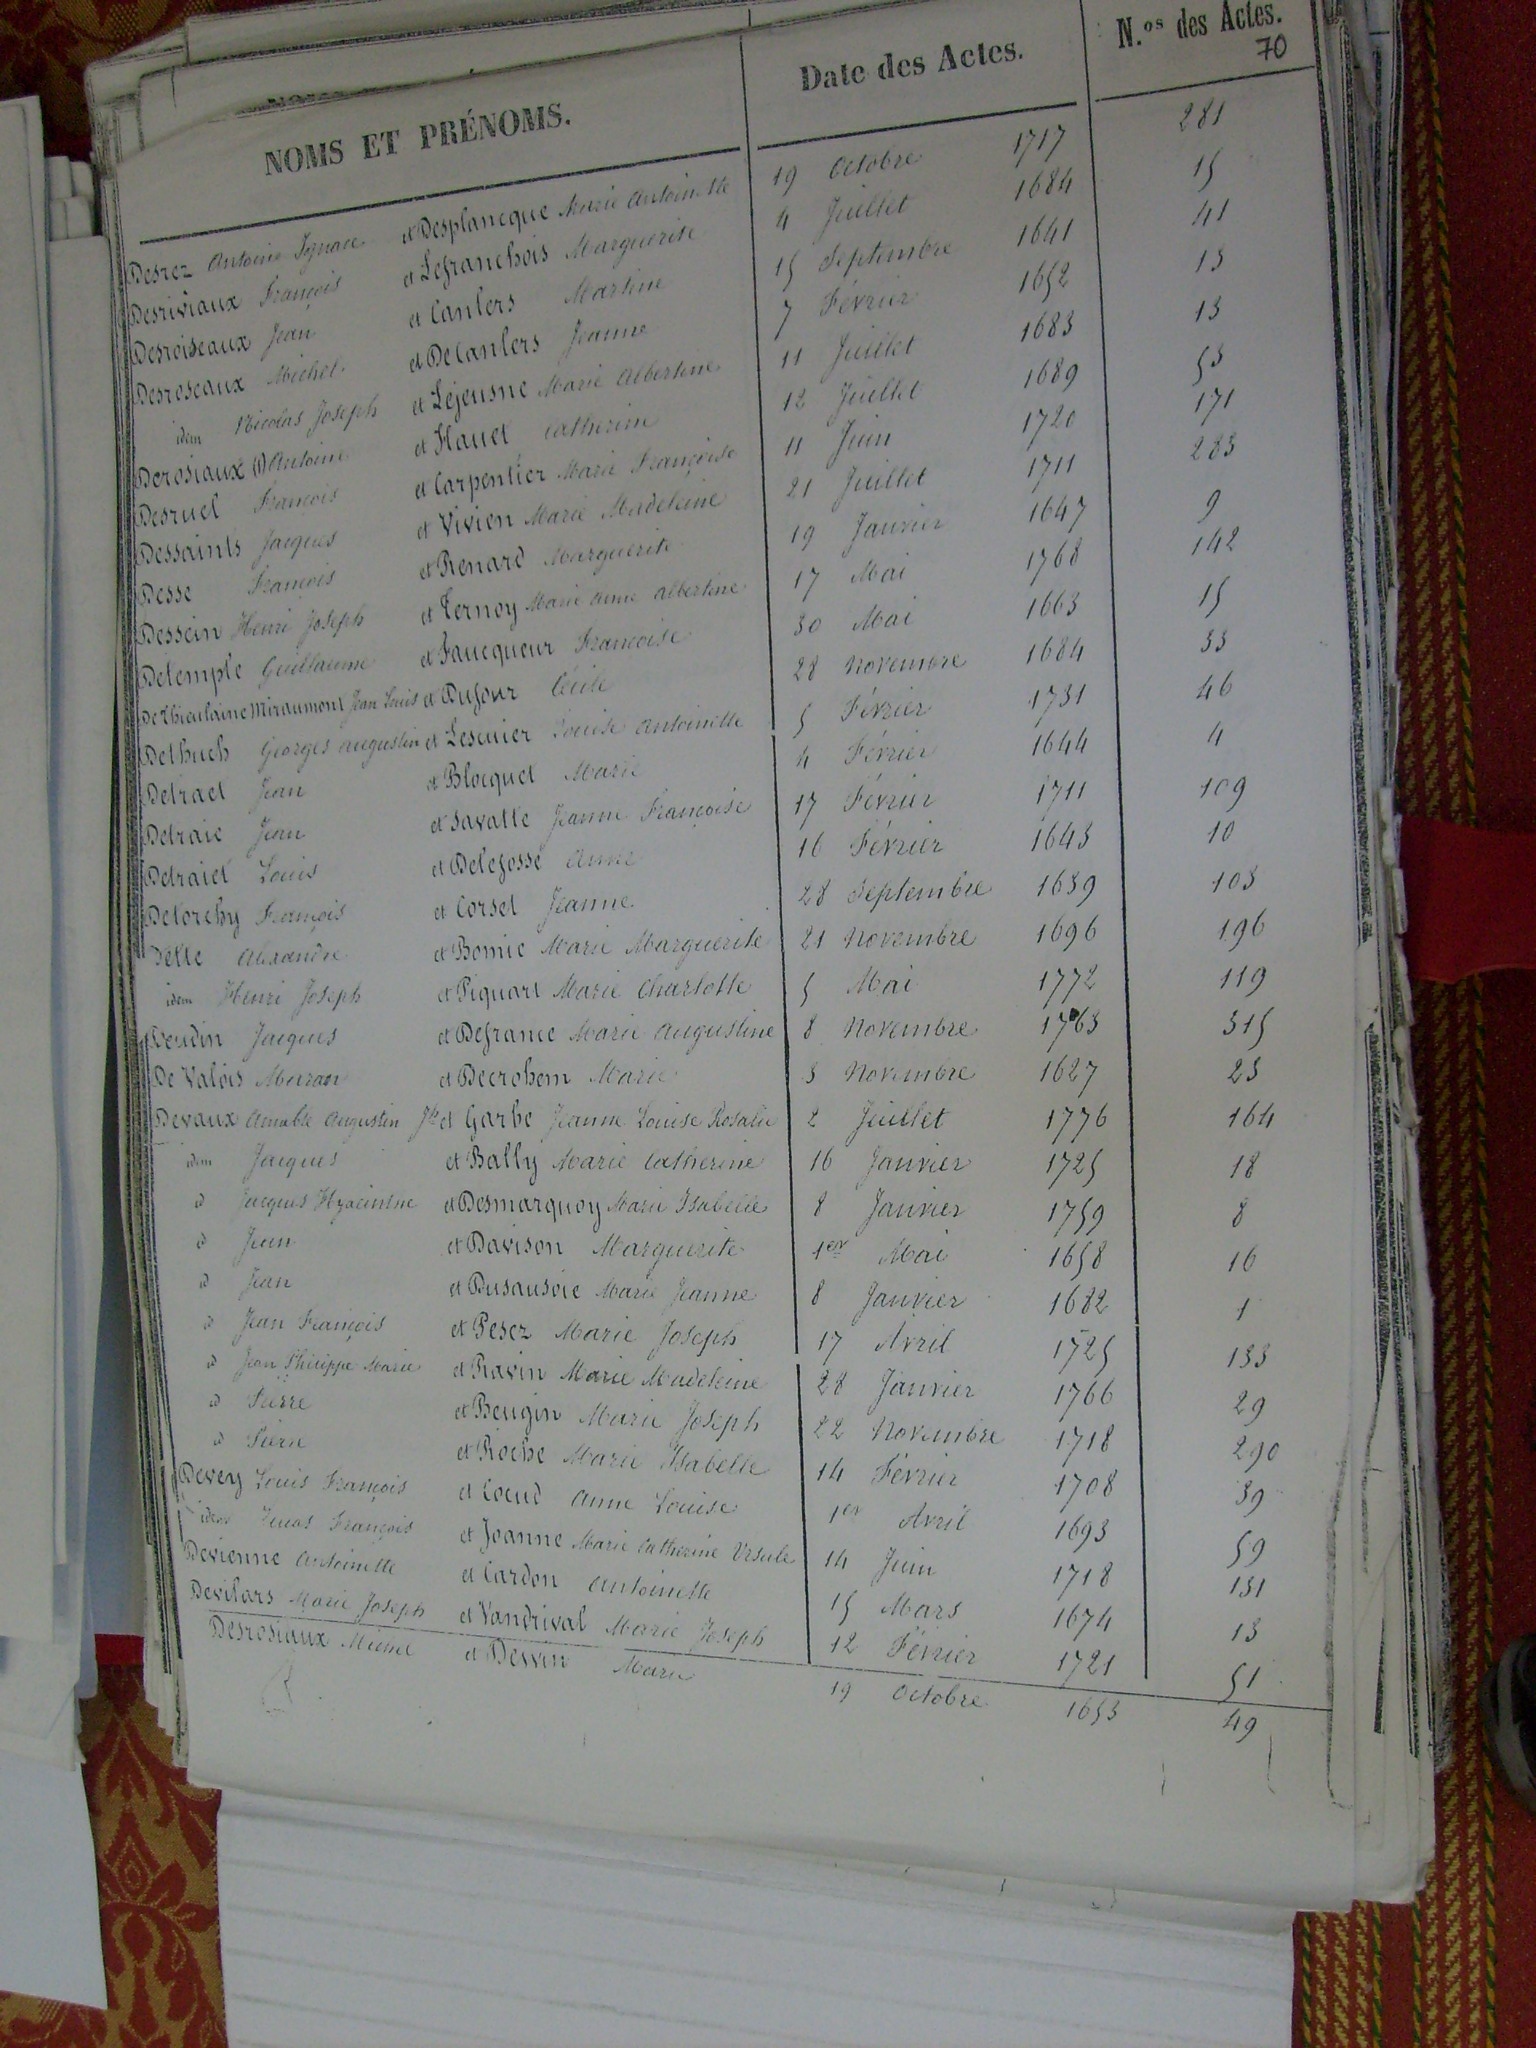 NOMS ET PRÉNOMS. Date des Actes. N.os des Actes.
70
Desrez Antoine Ignace et Desplancque Marie Antoinette 19 Octobre 1717 281
Desriviaux François et Lefranchois Marguerite 4 Juillet 1684 15
Desroiseaux Jean et Canlers Martine 15 Septembre 1641 41
Desroseaux Michel et De Canlers Jeanne 7 Février 1652 13
idem Nicolas Joseph et Lejeusne Marie Albertine 11 Juillet 1683 13
Derosiaux (1) Antoine et Hauet Catherine 12 Juillet 1689 53
Desruel François et Carpentier Marie Françoise 11 Juin 1720 171
Dessaints Jacques et Vivien Marie Madeleine 21 Juillet 1711 283
Desse François et Renard Marguerite 19 Janvier 1647 9
Dessein Henri Joseph et Ternoy Marie Anne Albertine 17 Mai 1768 142
Detemple Guillaume et Faucqueur Françoise 30 Mai 1663 15
De Thieulaine Miraumont Jean Louis et Dufour Cécile 28 Novembre 1684 33
Dethuch Georges Augustin et Lescuier Louise Antoinette 5 Février 1731 46
Detrael Jean et Blocquel Marie 4 Février 1644 4
Detraie Jean et Savatte Jeanne Françoise 17 Février 1711 109
Detraict Louis et Delefosse Anne 16 Février 1643 10
Detorchy François et Corsel Jeanne 28 Septembre 1639 103
Dette Alexandre et Bomie Marie Marguerite 21 Novembre 1696 196
idem Henri Joseph et Piquart Marie Charlotte 5 Mai 1772 119
Deudin Jacques et Defrance Marie Augustine 8 Novembre 1763 315
De Valois Meuran et Decrohem Marie 3 Novembre 1627 23
Devaux Amable Augustin Jh et Garbe Jeanne Louise Rosalie 2 Juillet 1776 164
idem Jacques et Bally Marie Catherine 16 Janvier 1725 18
d Jacques Hyacinthe et Desmarquoy Marie Isabelle 8 Janvier 1759 8
d Jean et Davison Marguerite 1er Mai 1658 16
d Jean et Dusausoie Marie Jeanne 8 Janvier 1682 1
d Jean François et Pesez Marie Joseph 17 Avril 1725 133
d Jean Philippe Marie et Ravin Marie Madeleine 28 Janvier 1766 29
d Pierre et Beugin Marie Joseph 22 Novembre 1718 290
d Pierre et Roche Marie Isabelle 14 Février 1708 39
Devey Louis François et Coeud Anne Louise 1er Avril 1693 59
idem François et Joanne Marie Catherine Ursule 14 Juin 1718 131
Devienne Antoinette et Cardon Antoinette 15 Mars 1674 13
Devilars Marie Joseph et Vandrival Marie Joseph 12 Février 1721 51
Desrosiaux Michel et Dessin Marie 19 Octobre 1653 49